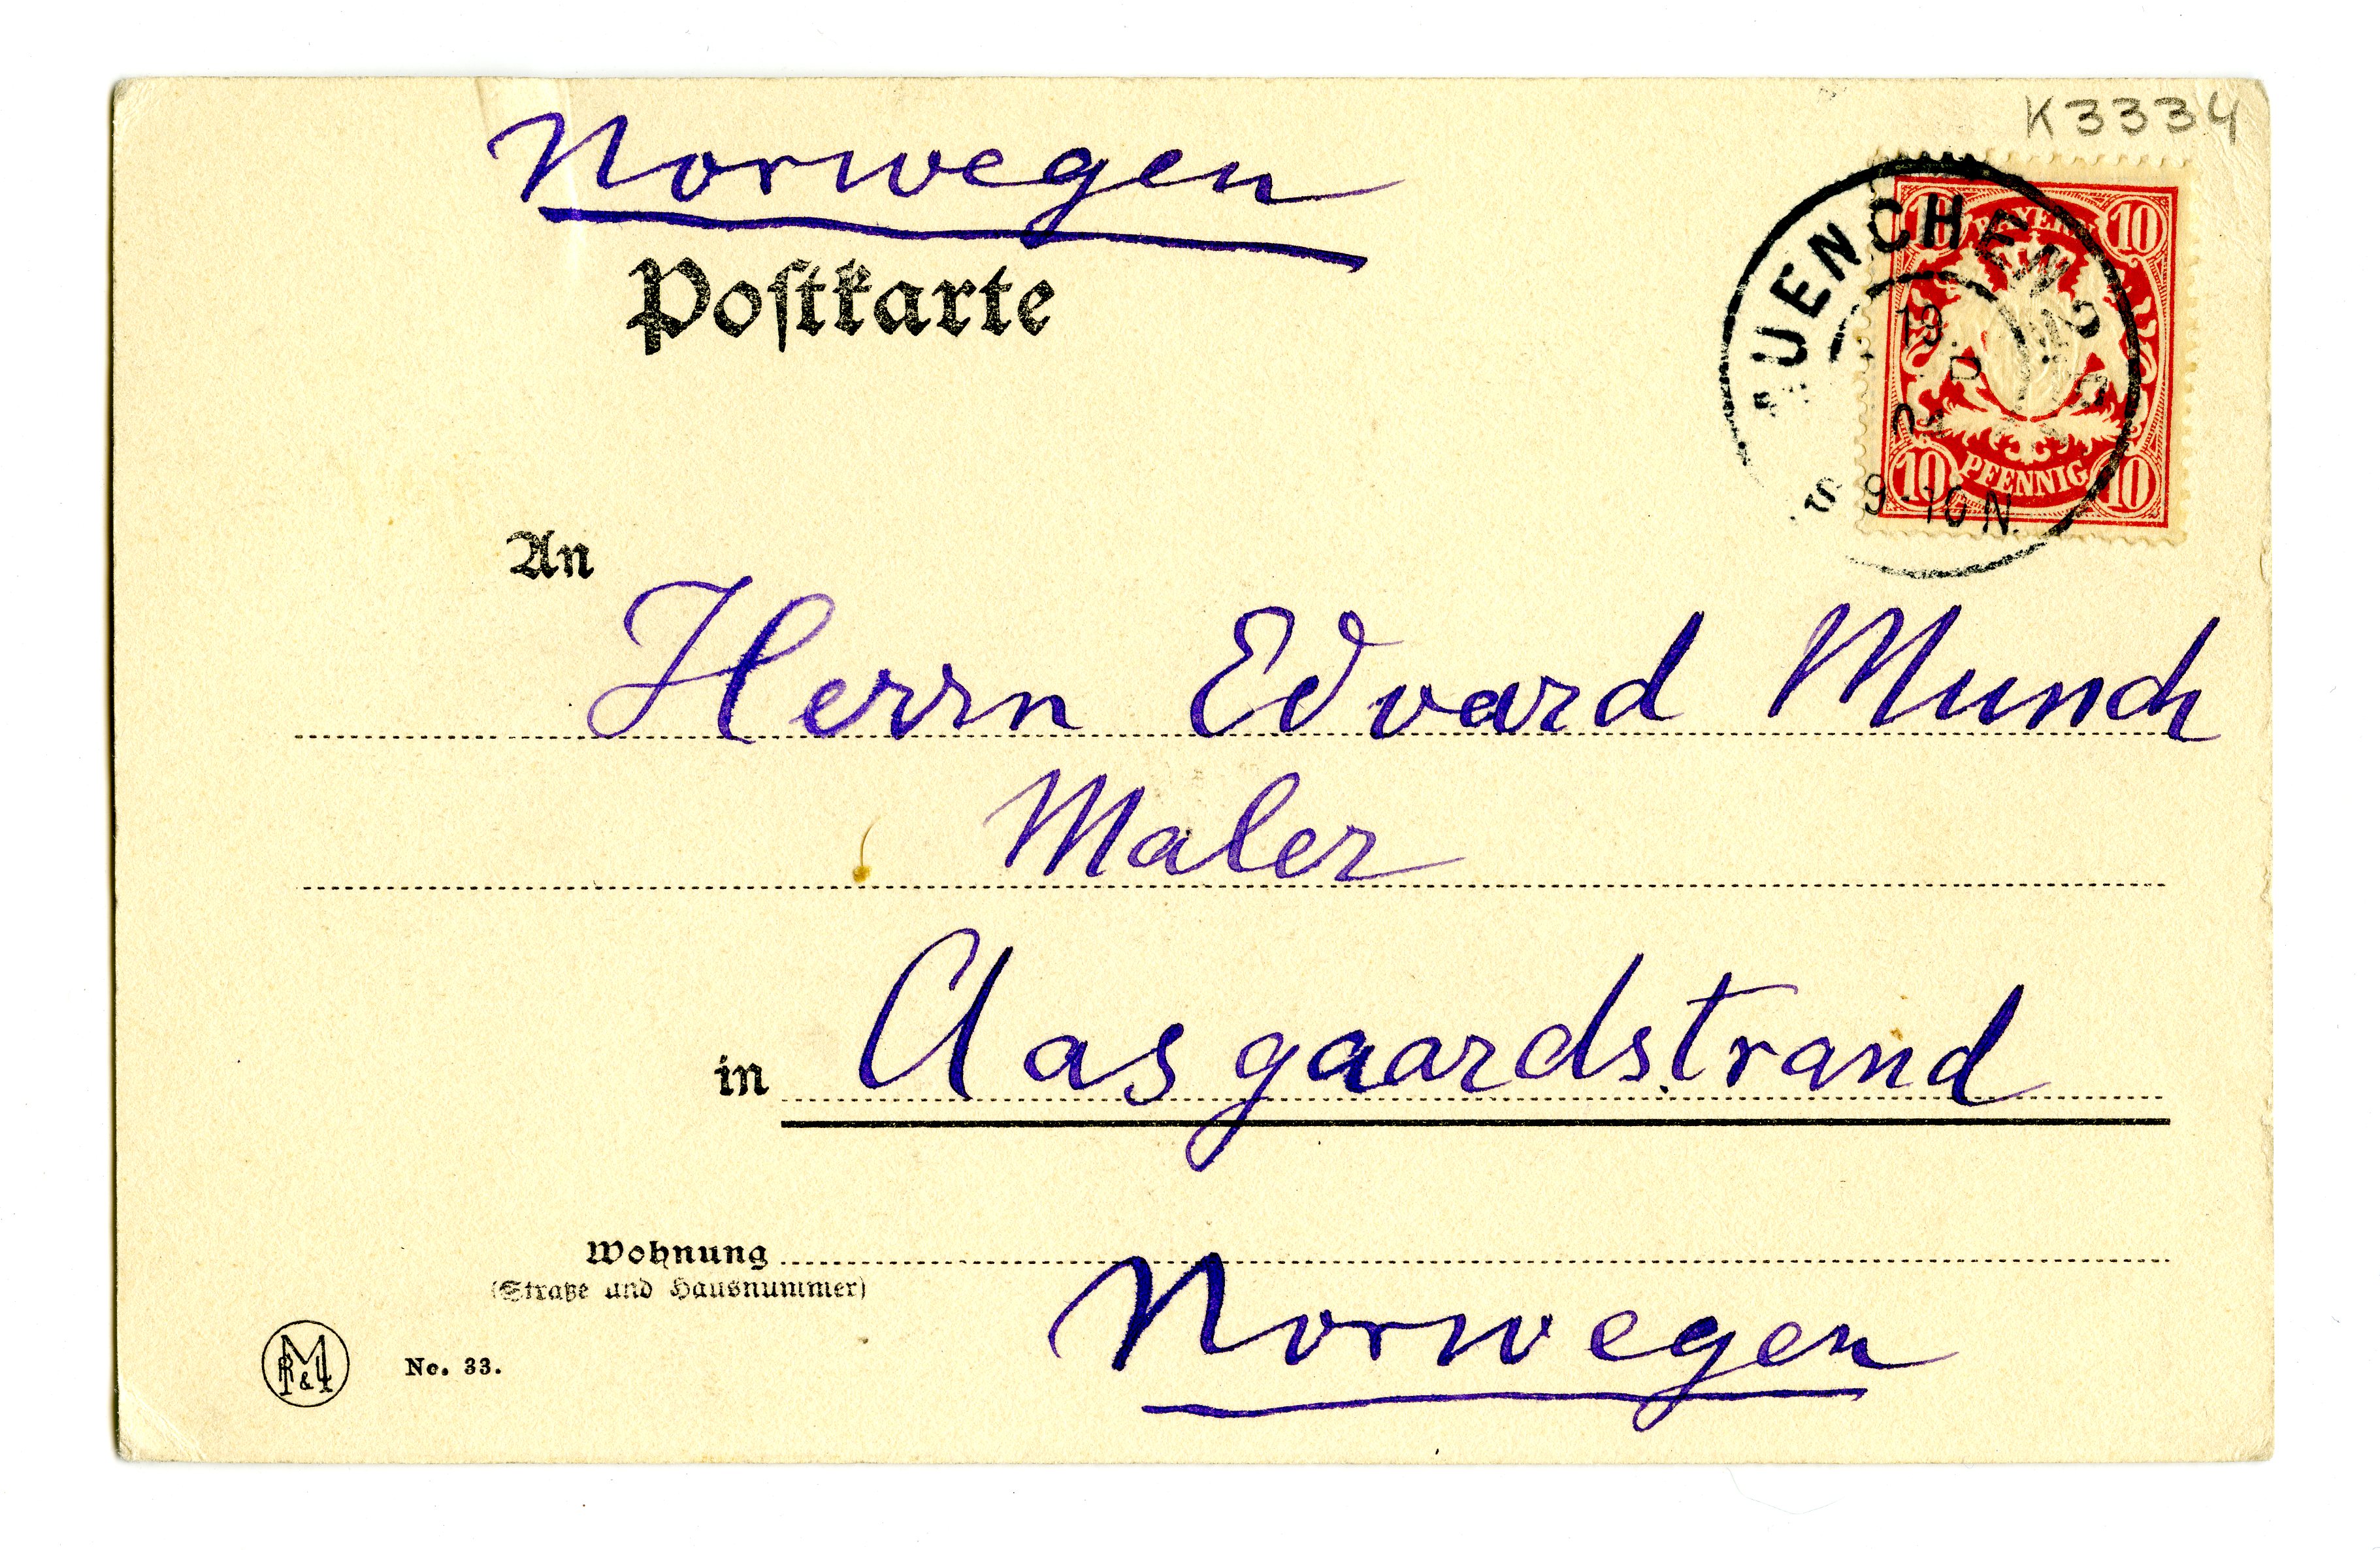 K3334
Norwegen
Postkarte
10 10
10 PFENNIG 10
MUENCHEN
19.
9-10 N.
An
Herrn Edvard Munch
Maler
in Aasgaardstrand
Wohnung
(Straße und Hausnummer)
Norwegen
No. 33.